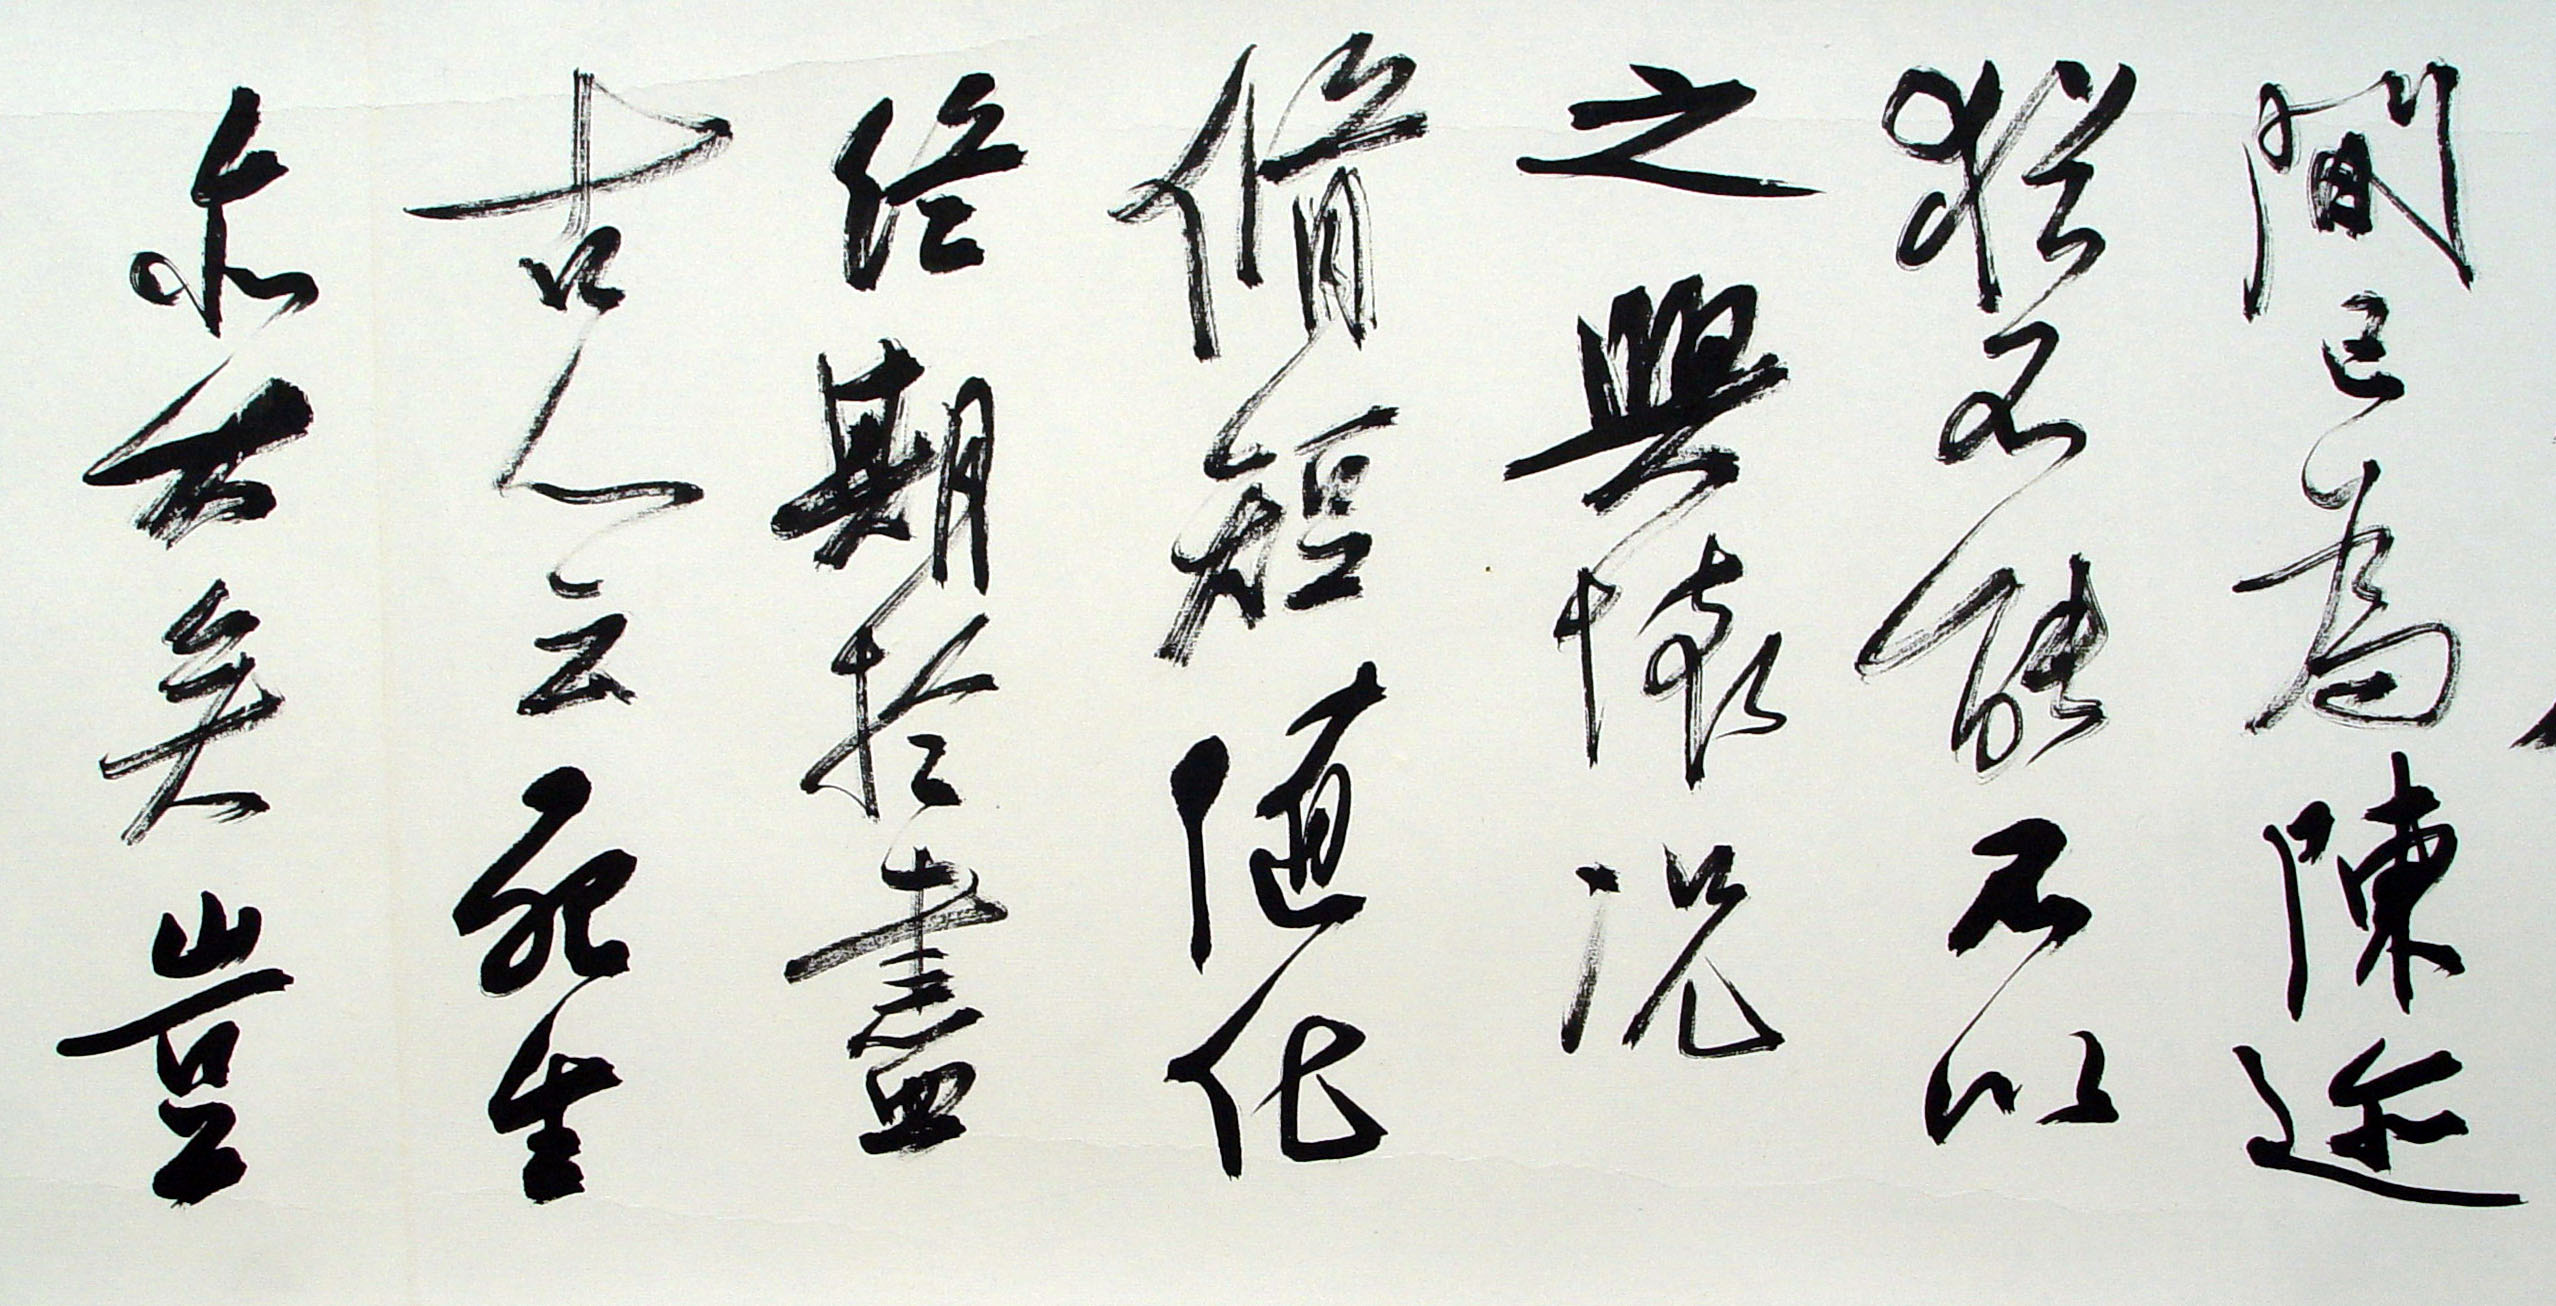 間已為陳迹
猶不能不以
之興懷況
脩短随化
終期於盡
古人云死生
亦大矣豈